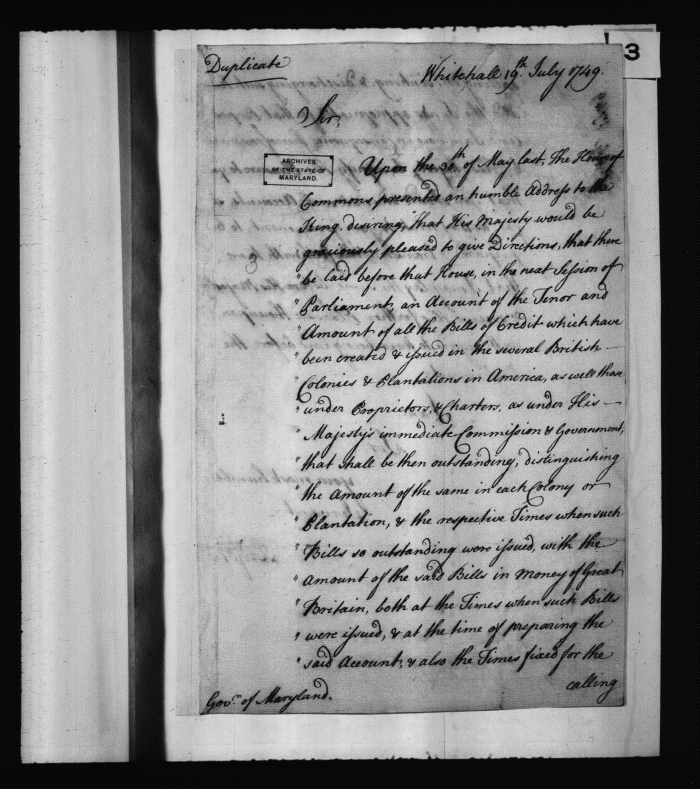 3
Duplicate
Whitehall 19th July 1749.
Sir,
ARCHIVES
OF THE STATE OF
MARYLAND.
Upon the 30th of May last, The House of
Commons, presented an humble Address to the
King, desiring, "that His Majesty would be
" graciously pleased to give Directions, that there
" be laid before that House, in the next Session of
" Parliament, an Account of the Tenor and
" Amount of all the Bills of Credit which have
" been created & issued in the several British
Colonies & Plantations in America, as well those
" under Proprietors, & Charters, as under His
" Majesty's immediate Commission & Government,
" that shall be then outstanding, distinguishing
" the Amount of the same in each Colony or
" Plantation, & the respective Times when such
" Bills so outstanding were issued, with the
" Amount of the said Bills in Money of Great
" Britain, both at the Times when such Bills
" were issued, & at the time of preparing the
" said Account, & also the Times fixed for the
calling
Govr. of Maryland.